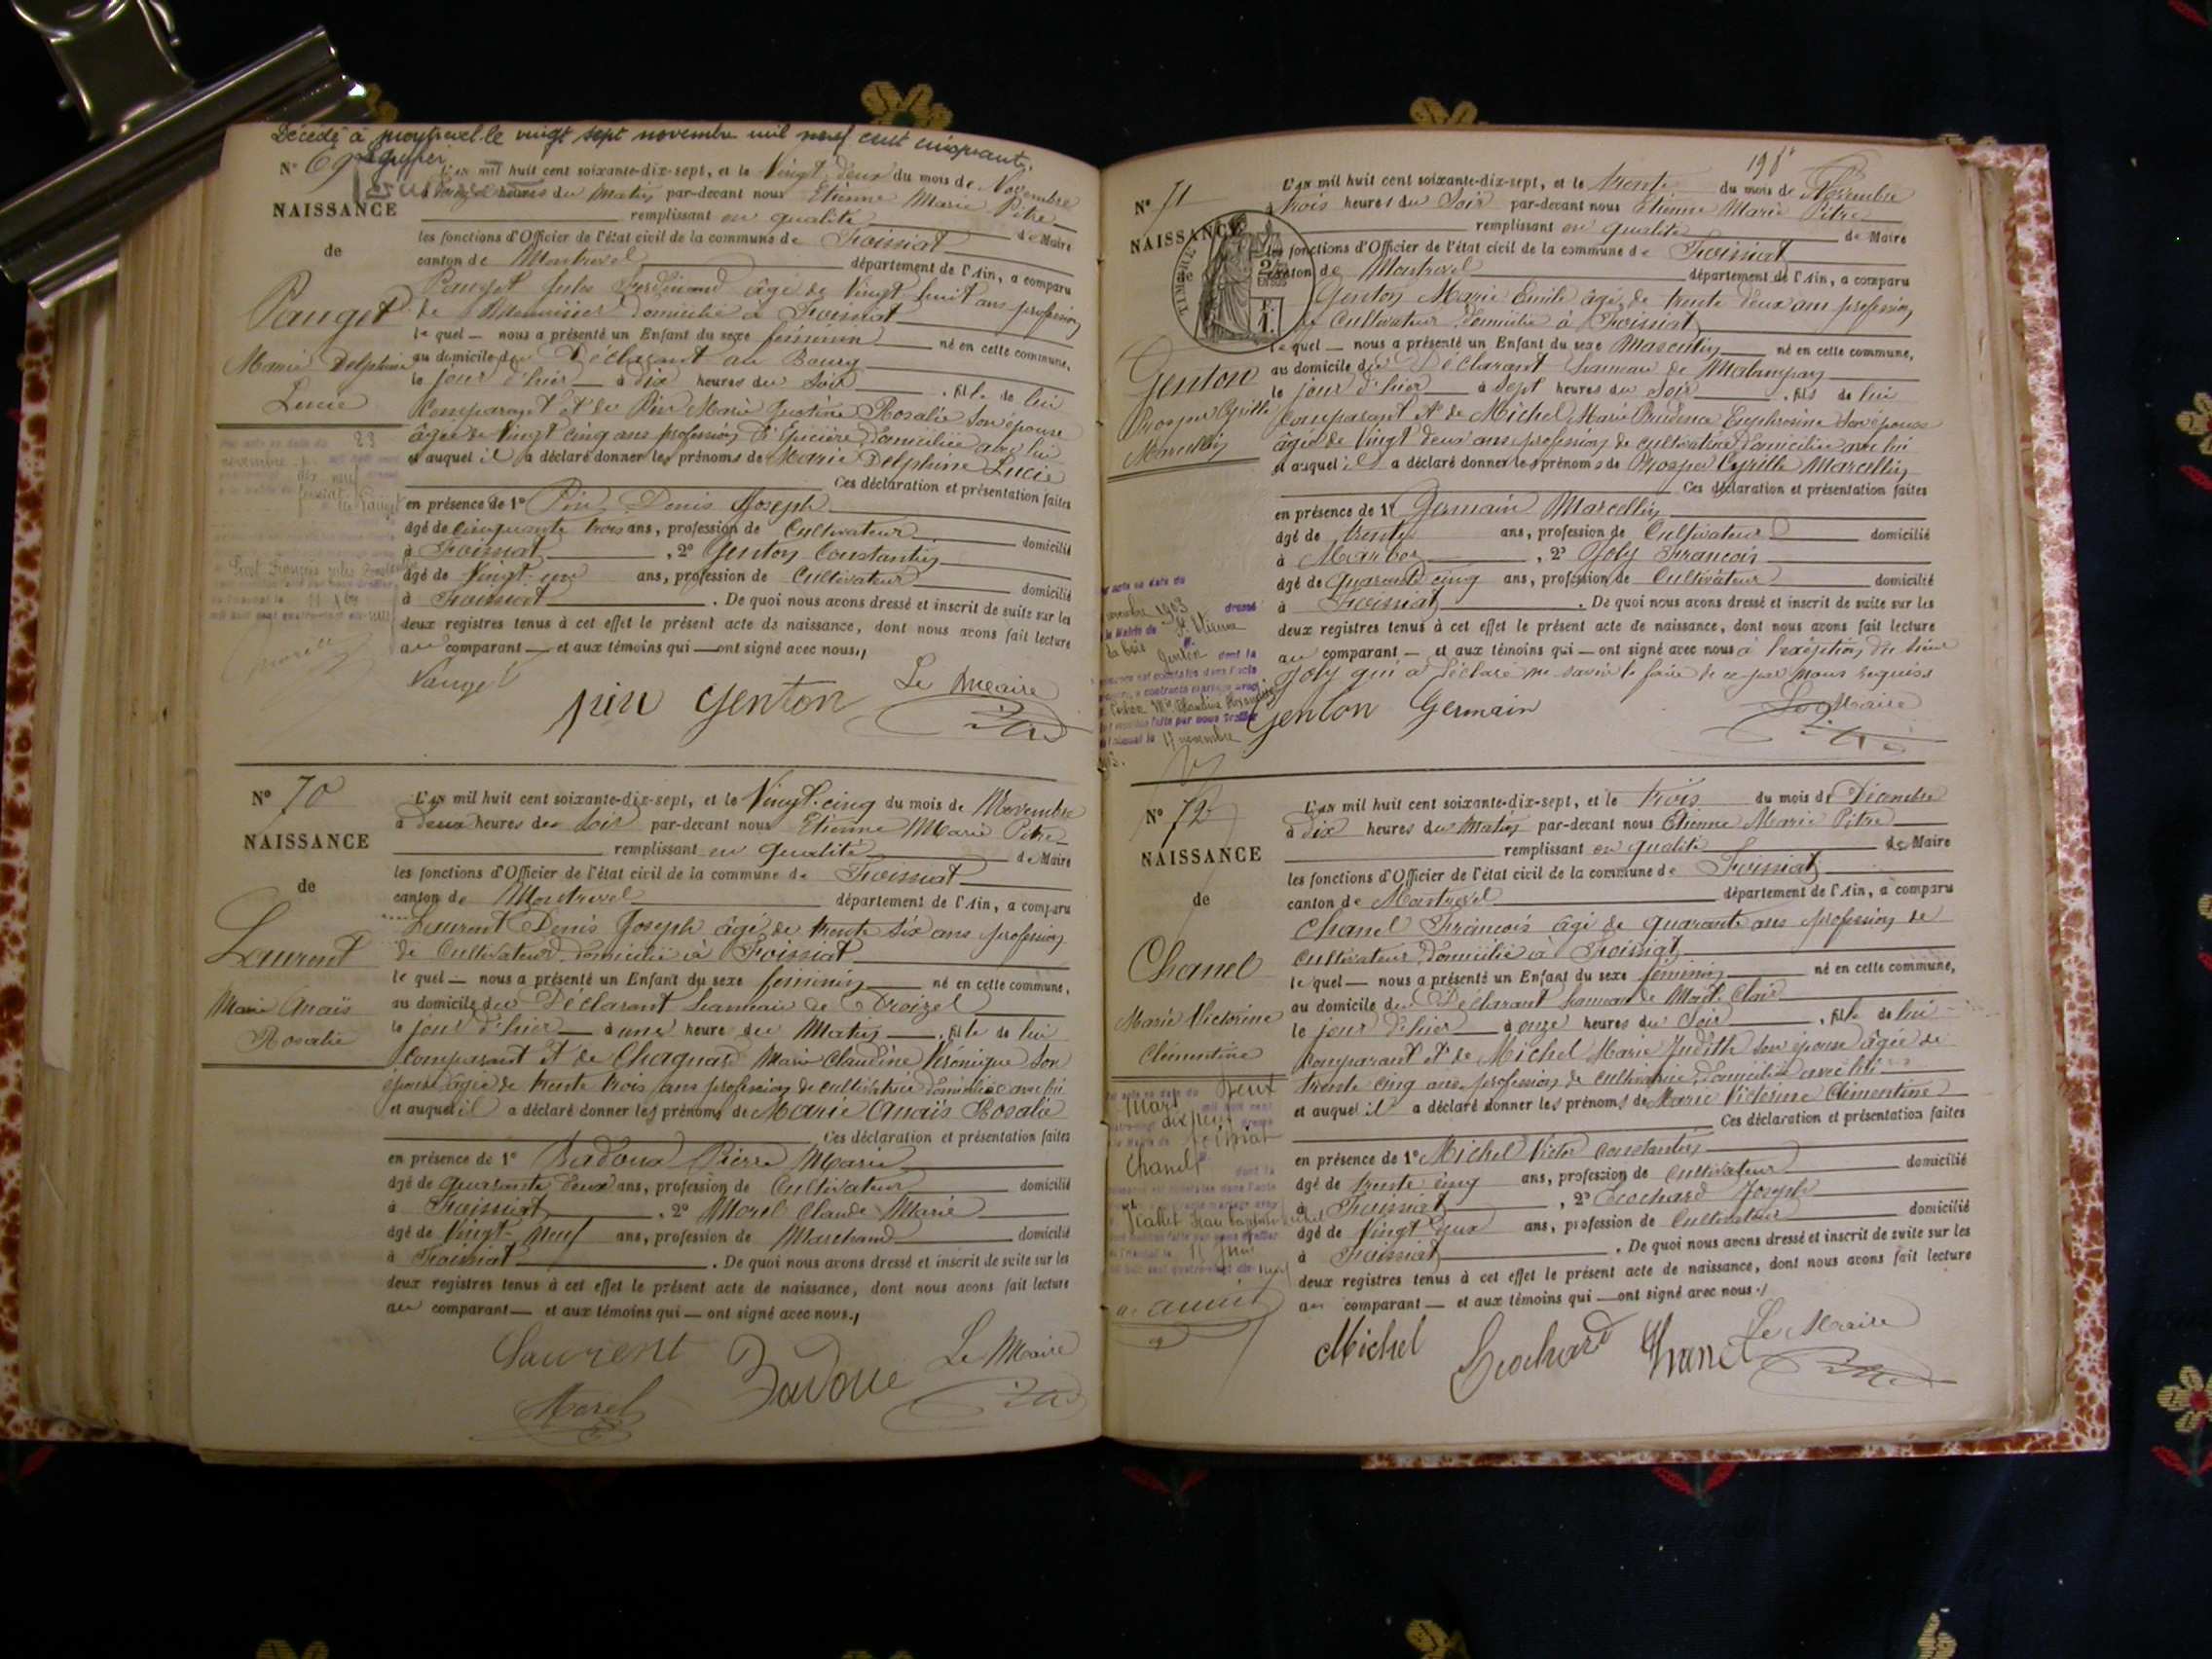 Décédé à Montrevel le vingt sept novembre mil neuf cent cinquante.
N° 69
NAISSANCE
de
Pauget
Marie Delphine
Lucie
L'AN mil huit cent soixante-dix-sept, et le Vingt deux du mois de Novembre
à heures du Matin par-devant nous Etienne Marie Pitre
remplissant en qualité de Maire
les fonctions d'Officier de l'état civil de la commune de Foissiat
canton de Montrevel département de l'Ain, a comparu
Pauget Jules Ferdinand âgé de Vingt huit ans profession
de Menuisier domicilié à Foissiat
le quel — nous a présenté un Enfant du sexe féminin né en cette commune,
au domicile du Déclarant au Bourg
le jour d'hier à dix heures du Soir, fille de lui
Comparant et de Pin Marie Justine Rosalie son épouse
âgée de Vingt cinq ans profession d'Epicière domiciliée avec lui
et auquel il a déclaré donner les prénoms de Marie Delphine Lucie
Ces déclaration et présentation faites
en présence de 1° Pin Denis Joseph
âgé de cinquante trois ans, profession de Cultivateur domicilié
à Foissiat, 2° Genton Constantin
âgé de Vingt ans, profession de Cultivateur domicilié
à Foissiat. De quoi nous avons dressé et inscrit de suite sur les
deux registres tenus à cet effet le présent acte de naissance, dont nous avons fait lecture
au comparant — et aux témoins qui — ont signé avec nous.
Pauget pin Genton Le Maire
N° 70
NAISSANCE
de
Laurent
Marie Anaïs
Rosalie
L'AN mil huit cent soixante-dix-sept, et le Vingt-cinq du mois de Novembre
à deux heures du soir par-devant nous Etienne Marie Pitre
remplissant en qualité de Maire
les fonctions d'Officier de l'état civil de la commune de Foissiat
canton de Montrevel département de l'Ain, a comparu
Laurent Denis Joseph âgé de trente six ans profession
de Cultivateur domicilié à Foissiat
le quel — nous a présenté un Enfant du sexe féminin né en cette commune,
au domicile du Déclarant hameau de
le jour d'hier à une heure du Matin, fille de lui
Comparant et de Chagnard Marie Claudine Véronique son
épouse âgée de trente trois ans profession de cultivatrice domiciliée avec lui
et auquel il a déclaré donner les prénoms de Marie Anaïs Rosalie
Ces déclaration et présentation faites
en présence de 1° Badoux Pierre Marie
âgé de quarante deux ans, profession de Cultivateur domicilié
à Foissiat, 2° Morel Claude Marie
âgé de Vingt-Neuf ans, profession de Marchand domicilié
à Foissiat. De quoi nous avons dressé et inscrit de suite sur les
deux registres tenus à cet effet le présent acte de naissance, dont nous avons fait lecture
au comparant — et aux témoins qui — ont signé avec nous.
Laurent Badoue Le Maire
Morel
N° 71
NAISSANCE
de
TIMBRE
Genton
Prosper Cyrille
Marcellin
L'AN mil huit cent soixante-dix-sept, et le trente du mois de Novembre
à trois heures du Soir par-devant nous Etienne Marie Pitre
remplissant en qualité de Maire
les fonctions d'Officier de l'état civil de la commune de Foissiat
canton de Montrevel département de l'Ain, a comparu
Genton Marie Emile âgé de trente deux ans profession
de Cultivateur domicilié à Foissiat
le quel — nous a présenté un Enfant du sexe Masculin né en cette commune,
au domicile du Déclarant hameau de
le jour d'hier à Sept heures du Soir, fils de lui
Comparant et de Michel Marie Prudence Euphrosine son épouse
âgée de Vingt deux ans profession de cultivatrice domiciliée avec lui
et auquel il a déclaré donner les prénoms de Prosper Cyrille Marcellin
Ces déclaration et présentation faites
en présence de 1° Germain Marcellin
âgé de trente ans, profession de Cultivateur domicilié
à Marboz, 2° Joly François
âgé de quarante cinq ans, profession de Cultivateur domicilié
à Foissiat. De quoi nous avons dressé et inscrit de suite sur les
deux registres tenus à cet effet le présent acte de naissance, dont nous avons fait lecture
au comparant — et aux témoins qui — ont signé avec nous à l'exception du sieur
Joly qui a déclaré ne savoir le faire de ce par nous requis
Genton Germain Le Maire
N° 72
NAISSANCE
de
Chanel
Marie Victorine
Clémentine
L'AN mil huit cent soixante-dix-sept, et le trois du mois de Décembre
à dix heures du Matin par-devant nous Etienne Marie Pitre
remplissant en qualité de Maire
les fonctions d'Officier de l'état civil de la commune de Foissiat
canton de Montrevel département de l'Ain, a comparu
Chanel François âgé de quarante ans profession de
Cultivateur domicilié à Foissiat
le quel — nous a présenté un Enfant du sexe féminin né en cette commune,
au domicile du Déclarant hameau de
le jour d'hier à onze heures du Soir, fille de lui
Comparant et de Michel Marie Judith son épouse âgée de
trente cinq ans profession de cultivatrice domiciliée avec lui
et auquel il a déclaré donner les prénoms de Marie Victorine Clémentine
Ces déclaration et présentation faites
en présence de 1° Michel Victor Constantin
âgé de trente cinq ans, profession de Cultivateur domicilié
à Foissiat, 2° Ecochard Joseph
âgé de Vingt deux ans, profession de Cultivateur domicilié
à Foissiat. De quoi nous avons dressé et inscrit de suite sur les
deux registres tenus à cet effet le présent acte de naissance, dont nous avons fait lecture
au comparant — et aux témoins qui — ont signé avec nous.
Michel Ecochard Chanel Le Maire